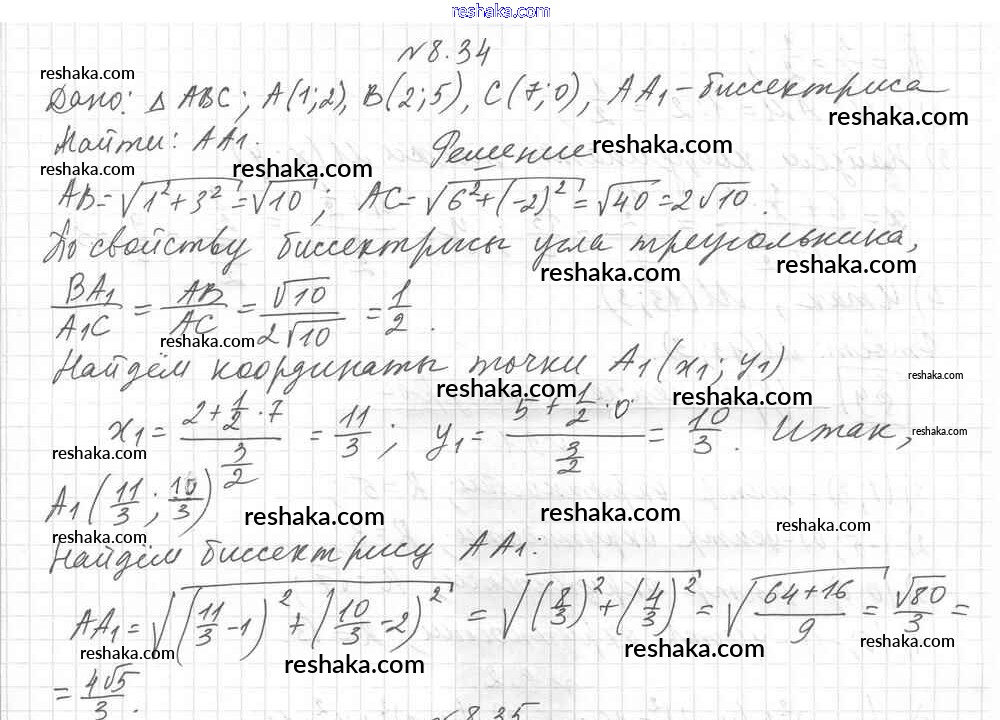 reshaka.com
№8.34
reshaka.com
Дано: △ ABC; A(1;2), B(2;5), C(7;0), AA₁ – биссектриса
reshaka.com
Найти: AA₁.
Решение
reshaka.com
reshaka.com
reshaka.com
AB = √(1² + 3²) = √10; AC = √(6² + (-2)²) = √40 = 2√10.
По свойству биссектрисы угла треугольника,
reshaka.com
reshaka.com
BA₁/A₁C = AB/AC = √10/2√10 = 1/2.
reshaka.com
Найдём координаты точки A₁(x₁; y₁)
reshaka.com
reshaka.com
reshaka.com
x₁ = (2 + 1/2 · 7)/(3/2) = 11/3; y₁ = (5 + 1/2 · 0)/(3/2) = 10/3. Итак,
reshaka.com
reshaka.com
A₁(11/3; 10/3)
reshaka.com
reshaka.com
reshaka.com
reshaka.com
Найдём биссектрису AA₁:
AA₁ = √((11/3 - 1)² + (10/3 - 2)²) = √((8/3)² + (4/3)²) = √((64+16)/9) = √80/3 =
reshaka.com
reshaka.com
reshaka.com
reshaka.com
= 4√5/3.
№8.35